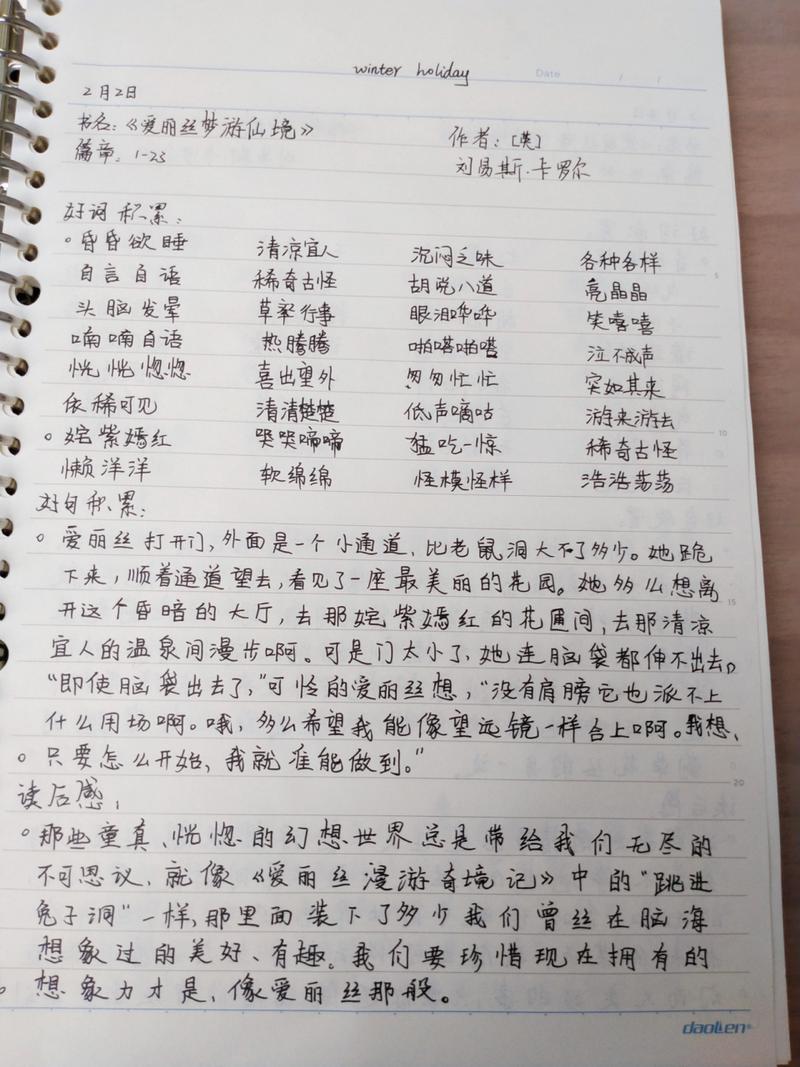 winter holiday
Date / /
2月2日
书名:《爱丽丝梦游仙境》 作者:[英]
篇章:1-23 刘易斯·卡罗尔
好词积累:
昏昏欲睡 清凉宜人 沉闷乏味 各种各样
自言自语 稀奇古怪 胡说八道 亮晶晶
头脑发晕 草率行事 眼泪哗哗 笑嘻嘻
喃喃自语 热腾腾 啪嗒啪嗒 泣不成声
恍恍惚惚 喜出望外 匆匆忙忙 突如其来
依稀可见 清清楚楚 低声嘀咕 游来游去
姹紫嫣红 哭哭啼啼 猛吃一惊 稀奇古怪
懒洋洋 软绵绵 怪模怪样 浩浩荡荡
好句积累:
爱丽丝打开门,外面是一个小通道,比老鼠洞大不了多少。她跪
下来,顺着通道望去,看见了一座最美丽的花园。她多么想离
开这个昏暗的大厅,去那姹紫嫣红的花圃间,去那清凉
宜人的温泉间漫步啊。可是门太小了,她连脑袋都伸不出去。
“即使脑袋出去了,”可怜的爱丽丝想,“没有肩膀它也派不上
什么用场啊。哦,多么希望我能像望远镜一样合上啊。我想,
只要怎么开始,我就准能做到。”
读后感:
那些童真、恍惚的幻想世界总是带给我们无尽的
不可思议,就像《爱丽丝漫游奇境记》中的“跳进
兔子洞”一样,那里面装下了多少我们曾丝在脑海
想象过的美好、有趣。我们要珍惜现在拥有的
想象力才是,像爱丽丝那般。
5
10
15
20
daolen